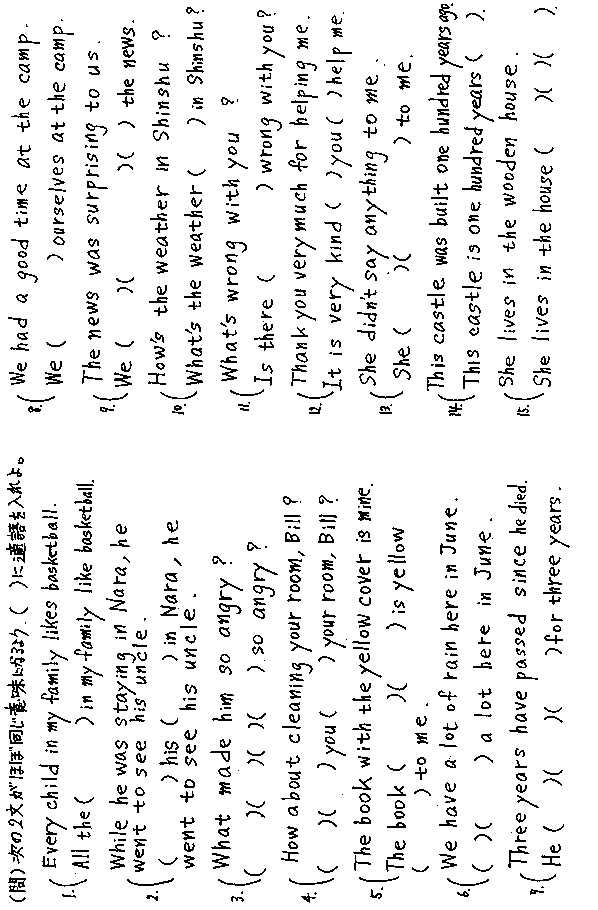 (問) 次の2文がほぼ同じ意味になるよう、( )に適語を入れよ。
1. Every child in my family likes basketball.
All the ( ) in my family like basketball.
2. While he was staying in Nara, he
went to see his uncle.
( ) his ( ) in Nara, he
went to see his uncle.
3. What made him so angry?
( )( )( )( ) so angry?
4. How about cleaning your room, Bill?
( )( ) you ( ) your room, Bill?
5. The book with the yellow cover is mine.
The book ( )( ) is yellow
( ) to me.
6. We have a lot of rain here in June.
( )( ) a lot here in June.
7. Three years have passed since he died.
He ( )( )( ) for three years.
8. We had a good time at the camp.
We ( ) ourselves at the camp.
9. The news was surprising to us.
We ( )( )( ) the news.
10. How's the weather in Shinshu?
What's the weather ( ) in Shinshu?
11. What's wrong with you?
Is there ( ) wrong with you?
12. Thank you very much for helping me.
It is very kind ( ) you ( ) help me.
13. She didn't say anything to me.
She ( )( ) to me.
14. This castle was built one hundred years ago.
This castle is one hundred years ( ).
15. She lives in the wooden house.
She lives in the house ( )( )( ).